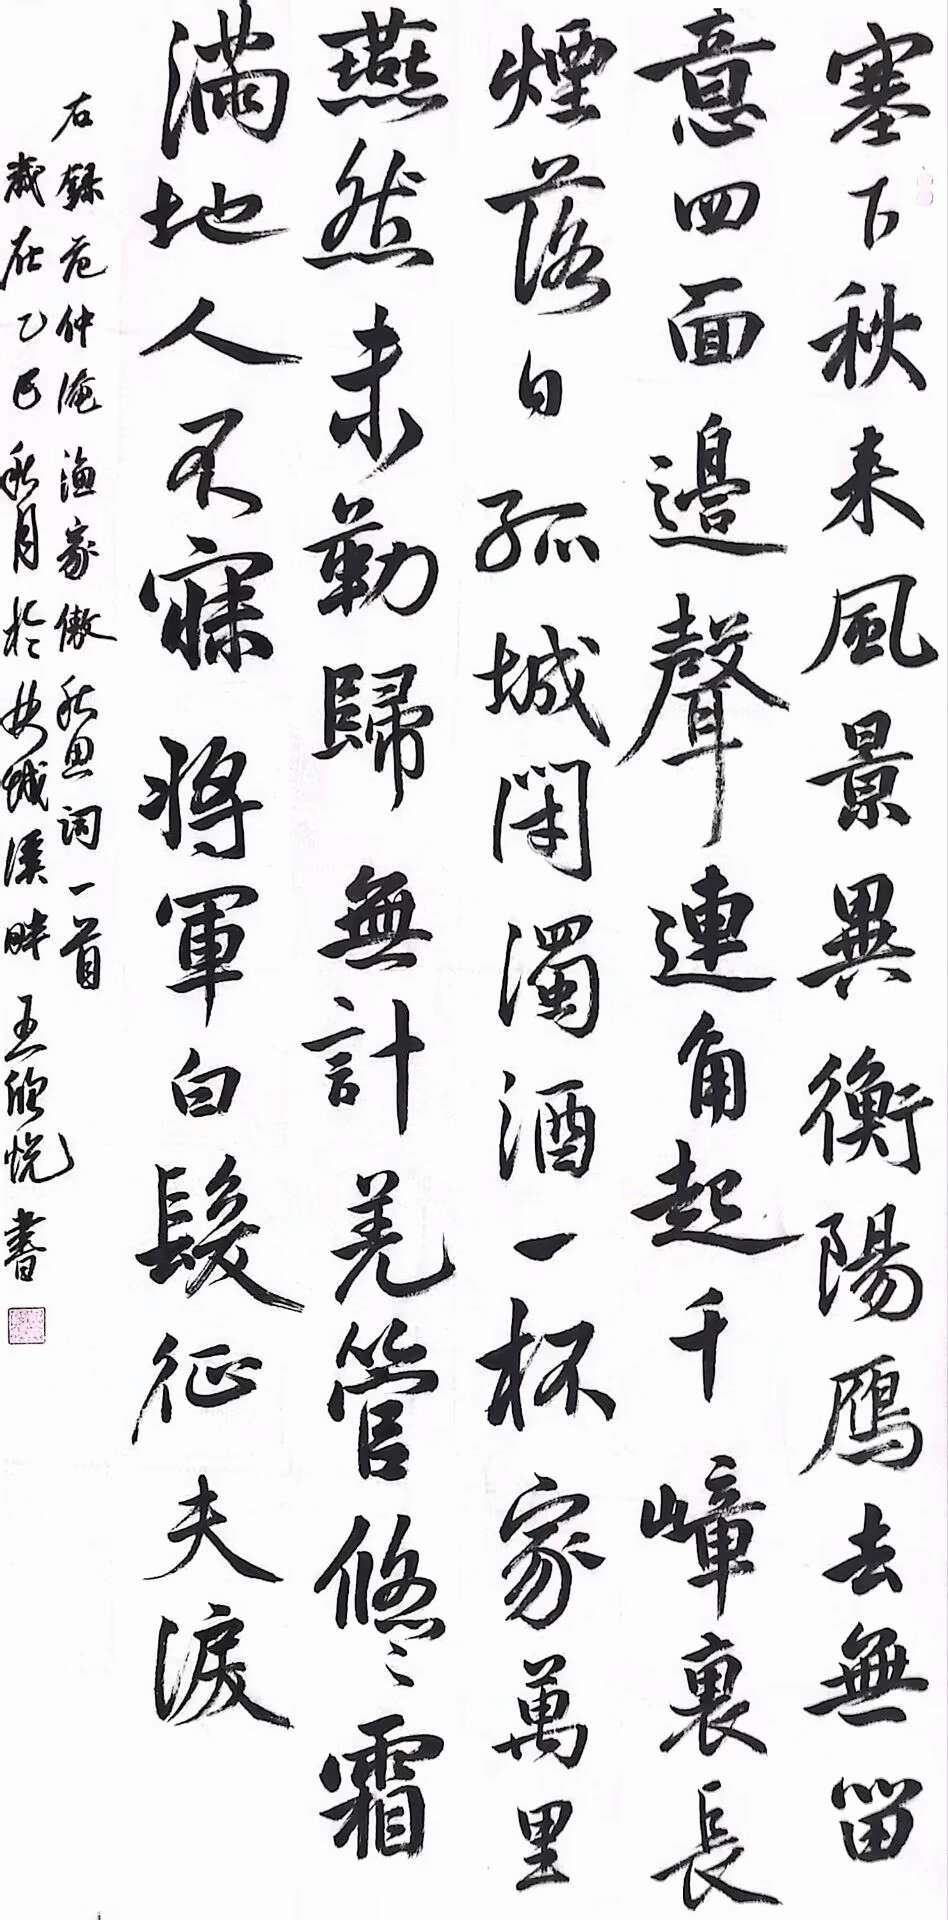 塞下秋来風景異衡陽雁去無留
意四面邊聲連角起千嶂裏長
煙落日孤城閉濁酒一杯家萬里
燕然未勒歸無計羌管悠〻霜
滿地人不寐將軍白髮征夫淚
右錄范仲淹漁家傲秋思詞一首
歲在乙巳秋月於安城溪畔王欣悅書